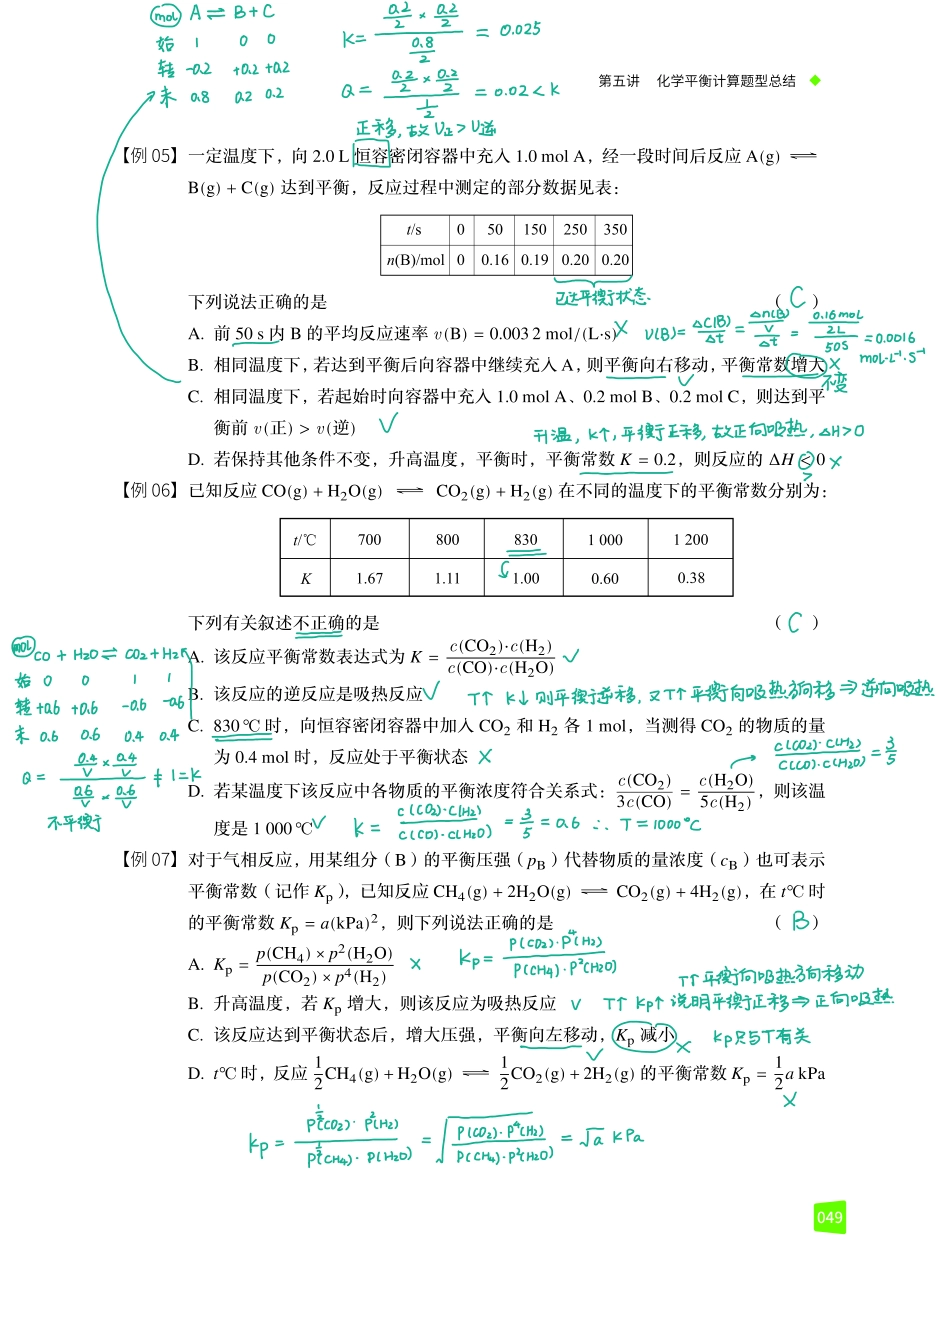 (mol) A ⇌ B + C
始 1 0 0
转 -0.2 +0.2 +0.2
末 0.8 0.2 0.2
K = (0.2/2 × 0.2/2) / (0.8/2) = 0.025
Q = (0.2/2 × 0.2/2) / (1/2) = 0.02 < K
正移, 故 U正 > U逆
第五讲 化学平衡计算题型总结
【例 05】一定温度下，向 2.0 L 恒容密闭容器中充入 1.0 mol A，经一段时间后反应 A(g) ⇌
B(g) + C(g) 达到平衡，反应过程中测定的部分数据见表：
t/s 0 50 150 250 350
n(B)/mol 0 0.16 0.19 0.20 0.20
已达平衡状态
下列说法正确的是 ( C )
A. 前 50 s 内 B 的平均反应速率 v(B) = 0.003 2 mol/(L·s) ×
U(B) = ΔC(B)/Δt = (Δn(B)/V)/Δt = (0.16mol/2L)/50s = 0.0016 mol·L⁻¹·s⁻¹
B. 相同温度下，若达到平衡后向容器中继续充入 A，则平衡向右移动，平衡常数增大 ×
不变
C. 相同温度下，若起始时向容器中充入 1.0 mol A、0.2 mol B、0.2 mol C，则达到平
衡前 v(正) > v(逆) √
升温, K↑, 平衡正移, 故正向吸热, ΔH>0
D. 若保持其他条件不变，升高温度，平衡时，平衡常数 K = 0.2，则反应的 ΔH < 0 ×
>
【例 06】已知反应 CO(g) + H₂O(g) ⇌ CO₂(g) + H₂(g) 在不同的温度下的平衡常数分别为：
t/℃ 700 800 830 1 000 1 200
K 1.67 1.11 1.00 0.60 0.38
下列有关叙述不正确的是 ( C )
(mol) CO + H2O ⇌ CO2 + H2
始 0 0 1 1
转 +0.6 +0.6 -0.6 -0.6
末 0.6 0.6 0.4 0.4
Q = (0.4/V × 0.4/V) / (0.6/V × 0.6/V) ≠ 1 = K
不平衡
A. 该反应平衡常数表达式为 K = c(CO₂)·c(H₂) / c(CO)·c(H₂O) √
B. 该反应的逆反应是吸热反应 √ T↑ K↓ 则平衡逆移, 又T↑ 平衡向吸热方向移 ⇒ 逆向吸热
C. 830 ℃ 时，向恒容密闭容器中加入 CO₂ 和 H₂ 各 1 mol，当测得 CO₂ 的物质的量
为 0.4 mol 时，反应处于平衡状态 ×
C(CO2)·C(H2) / C(CO)·C(H2O) = 3/5
D. 若某温度下该反应中各物质的平衡浓度符合关系式：c(CO₂)/3c(CO) = c(H₂O)/5c(H₂)，则该温
度是 1 000 ℃ √ K = C(CO2)·C(H2) / C(CO)·C(H2O) = 3/5 = 0.6 ∴ T = 1000℃
【例 07】对于气相反应，用某组分（B）的平衡压强（p_B）代替物质的量浓度（c_B）也可表示
平衡常数（记作 K_p），已知反应 CH₄(g) + 2H₂O(g) ⇌ CO₂(g) + 4H₂(g)，在 t℃ 时
的平衡常数 K_p = a(kPa)²，则下列说法正确的是 ( B )
A. K_p = p(CH₄) × p²(H₂O) / p(CO₂) × p⁴(H₂) × Kp = P(CO2)·P⁴(H2) / P(CH4)·P²(H2O)
T↑平衡向吸热方向移动
B. 升高温度，若 K_p 增大，则该反应为吸热反应 √ T↑ Kp↑ 说明平衡正移 ⇒ 正向吸热
C. 该反应达到平衡状态后，增大压强，平衡向左移动，K_p 减小 × Kp只与T有关
√
D. t℃ 时，反应 1/2 CH₄(g) + H₂O(g) ⇌ 1/2 CO₂(g) + 2H₂(g) 的平衡常数 K_p = 1/2 a kPa
×
Kp = P^½(CO2)·P²(H2) / P^½(CH4)·P(H2O) = √(P(CO2)·P⁴(H2) / P(CH4)·P²(H2O)) = √a kPa
049